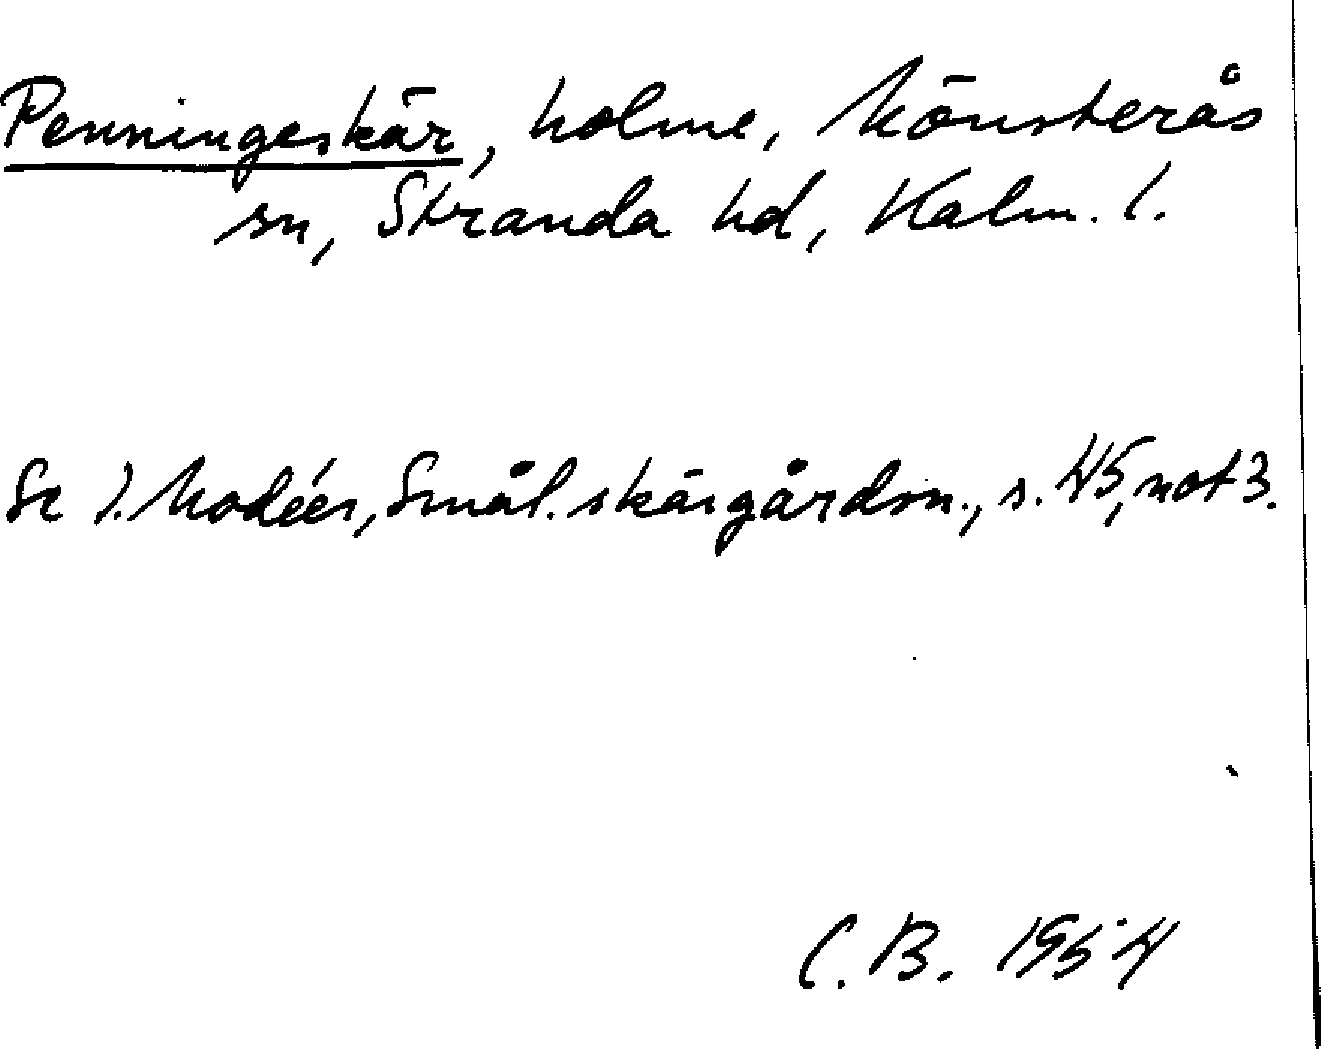 Penningeskär, holme, Mönsterås
sn, Stranda hd, Kalm. l.
Se I. Modéer, Smål. skärgårdsn., s. 45, not 3.
C. B. 1954